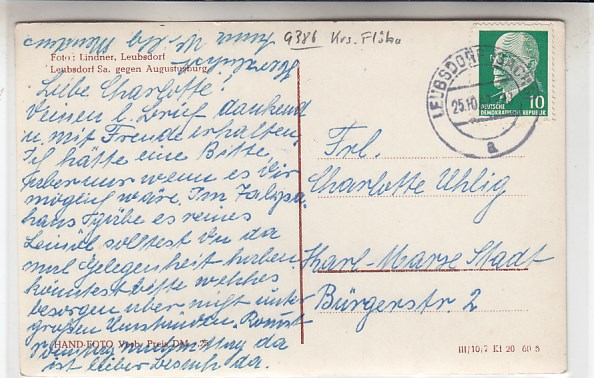 9386 Krs. Flöha
Foto: Lindner, Leubsdorf
Leubsdorf Sa. gegen Augustusburg
Liebe Charlotte!
Deinen l. Brief dankend
u. mit Freude erhalten.
Ich hätte eine Bitte,
aber nur wenn es Dir
möglich wäre. Im
haus gäbe es reines
Leinöl solltest Du da
mal Gelegenheit haben
könntest bitte welches
besorgen aber nicht unter
großen Umständen.
da
ist lieber Besuch da.
Herzlichst
HAND-FOTO Verb. Preis DM -.25
LEUBSDORF (SACHS)
25.10.
a
DEUTSCHE
DEMOKRATISCHE REPUBLIK
10
Frl.
Charlotte Uhlig
Karl-Marx-Stadt
Bürgerstr. 2
III/10/7 Kt 20 60 5